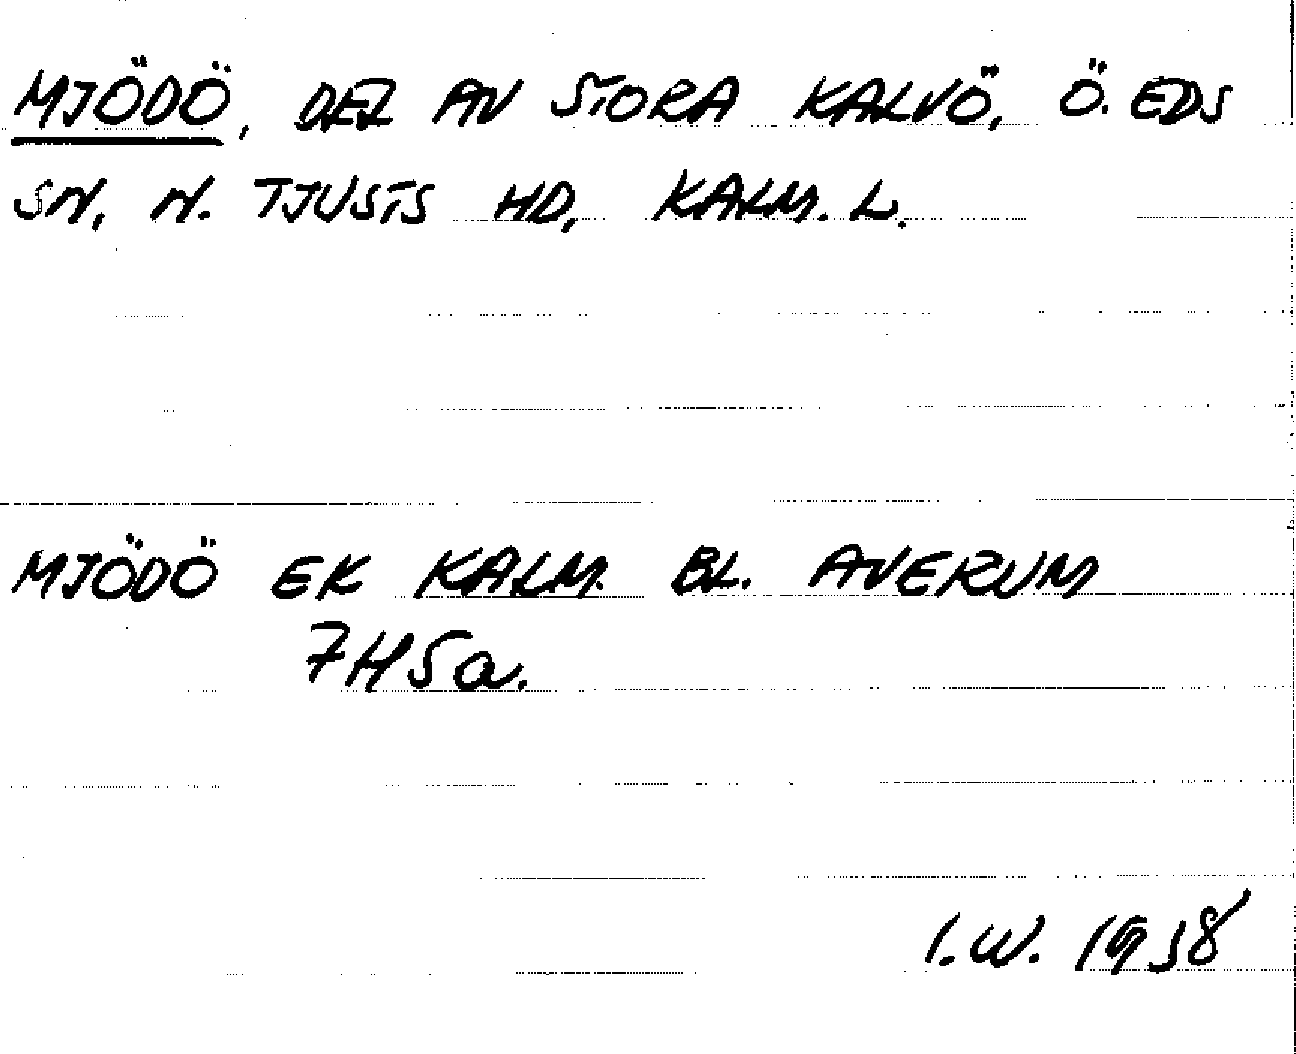 MJÖDÖ, DEL AV STORA KALVÖ, Ö. EDS
SN, N. TJUSTS HD, KALM. L.
MJÖDÖ EK KALM. BL. AVERUM
7H5a.
I.W. 1958